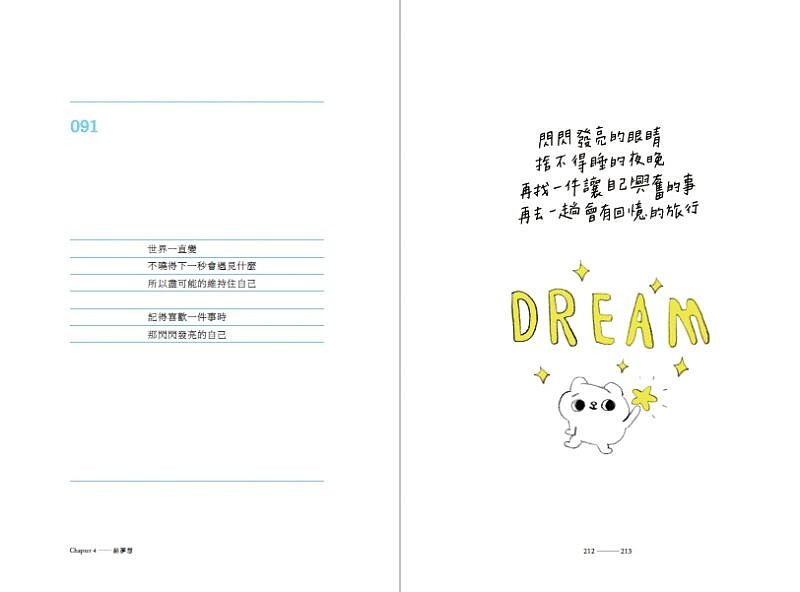 091
世界一直變
不曉得下一秒會遇見什麼
所以盡可能的維持住自己
記得喜歡一件事時
那閃閃發亮的自己
Chapter 4 —— 給夢想
閃閃發亮的眼睛
捨不得睡的夜晚
再找一件讓自己興奮的事
再去一趟會有回憶的旅行
DREAM
212 —— 213